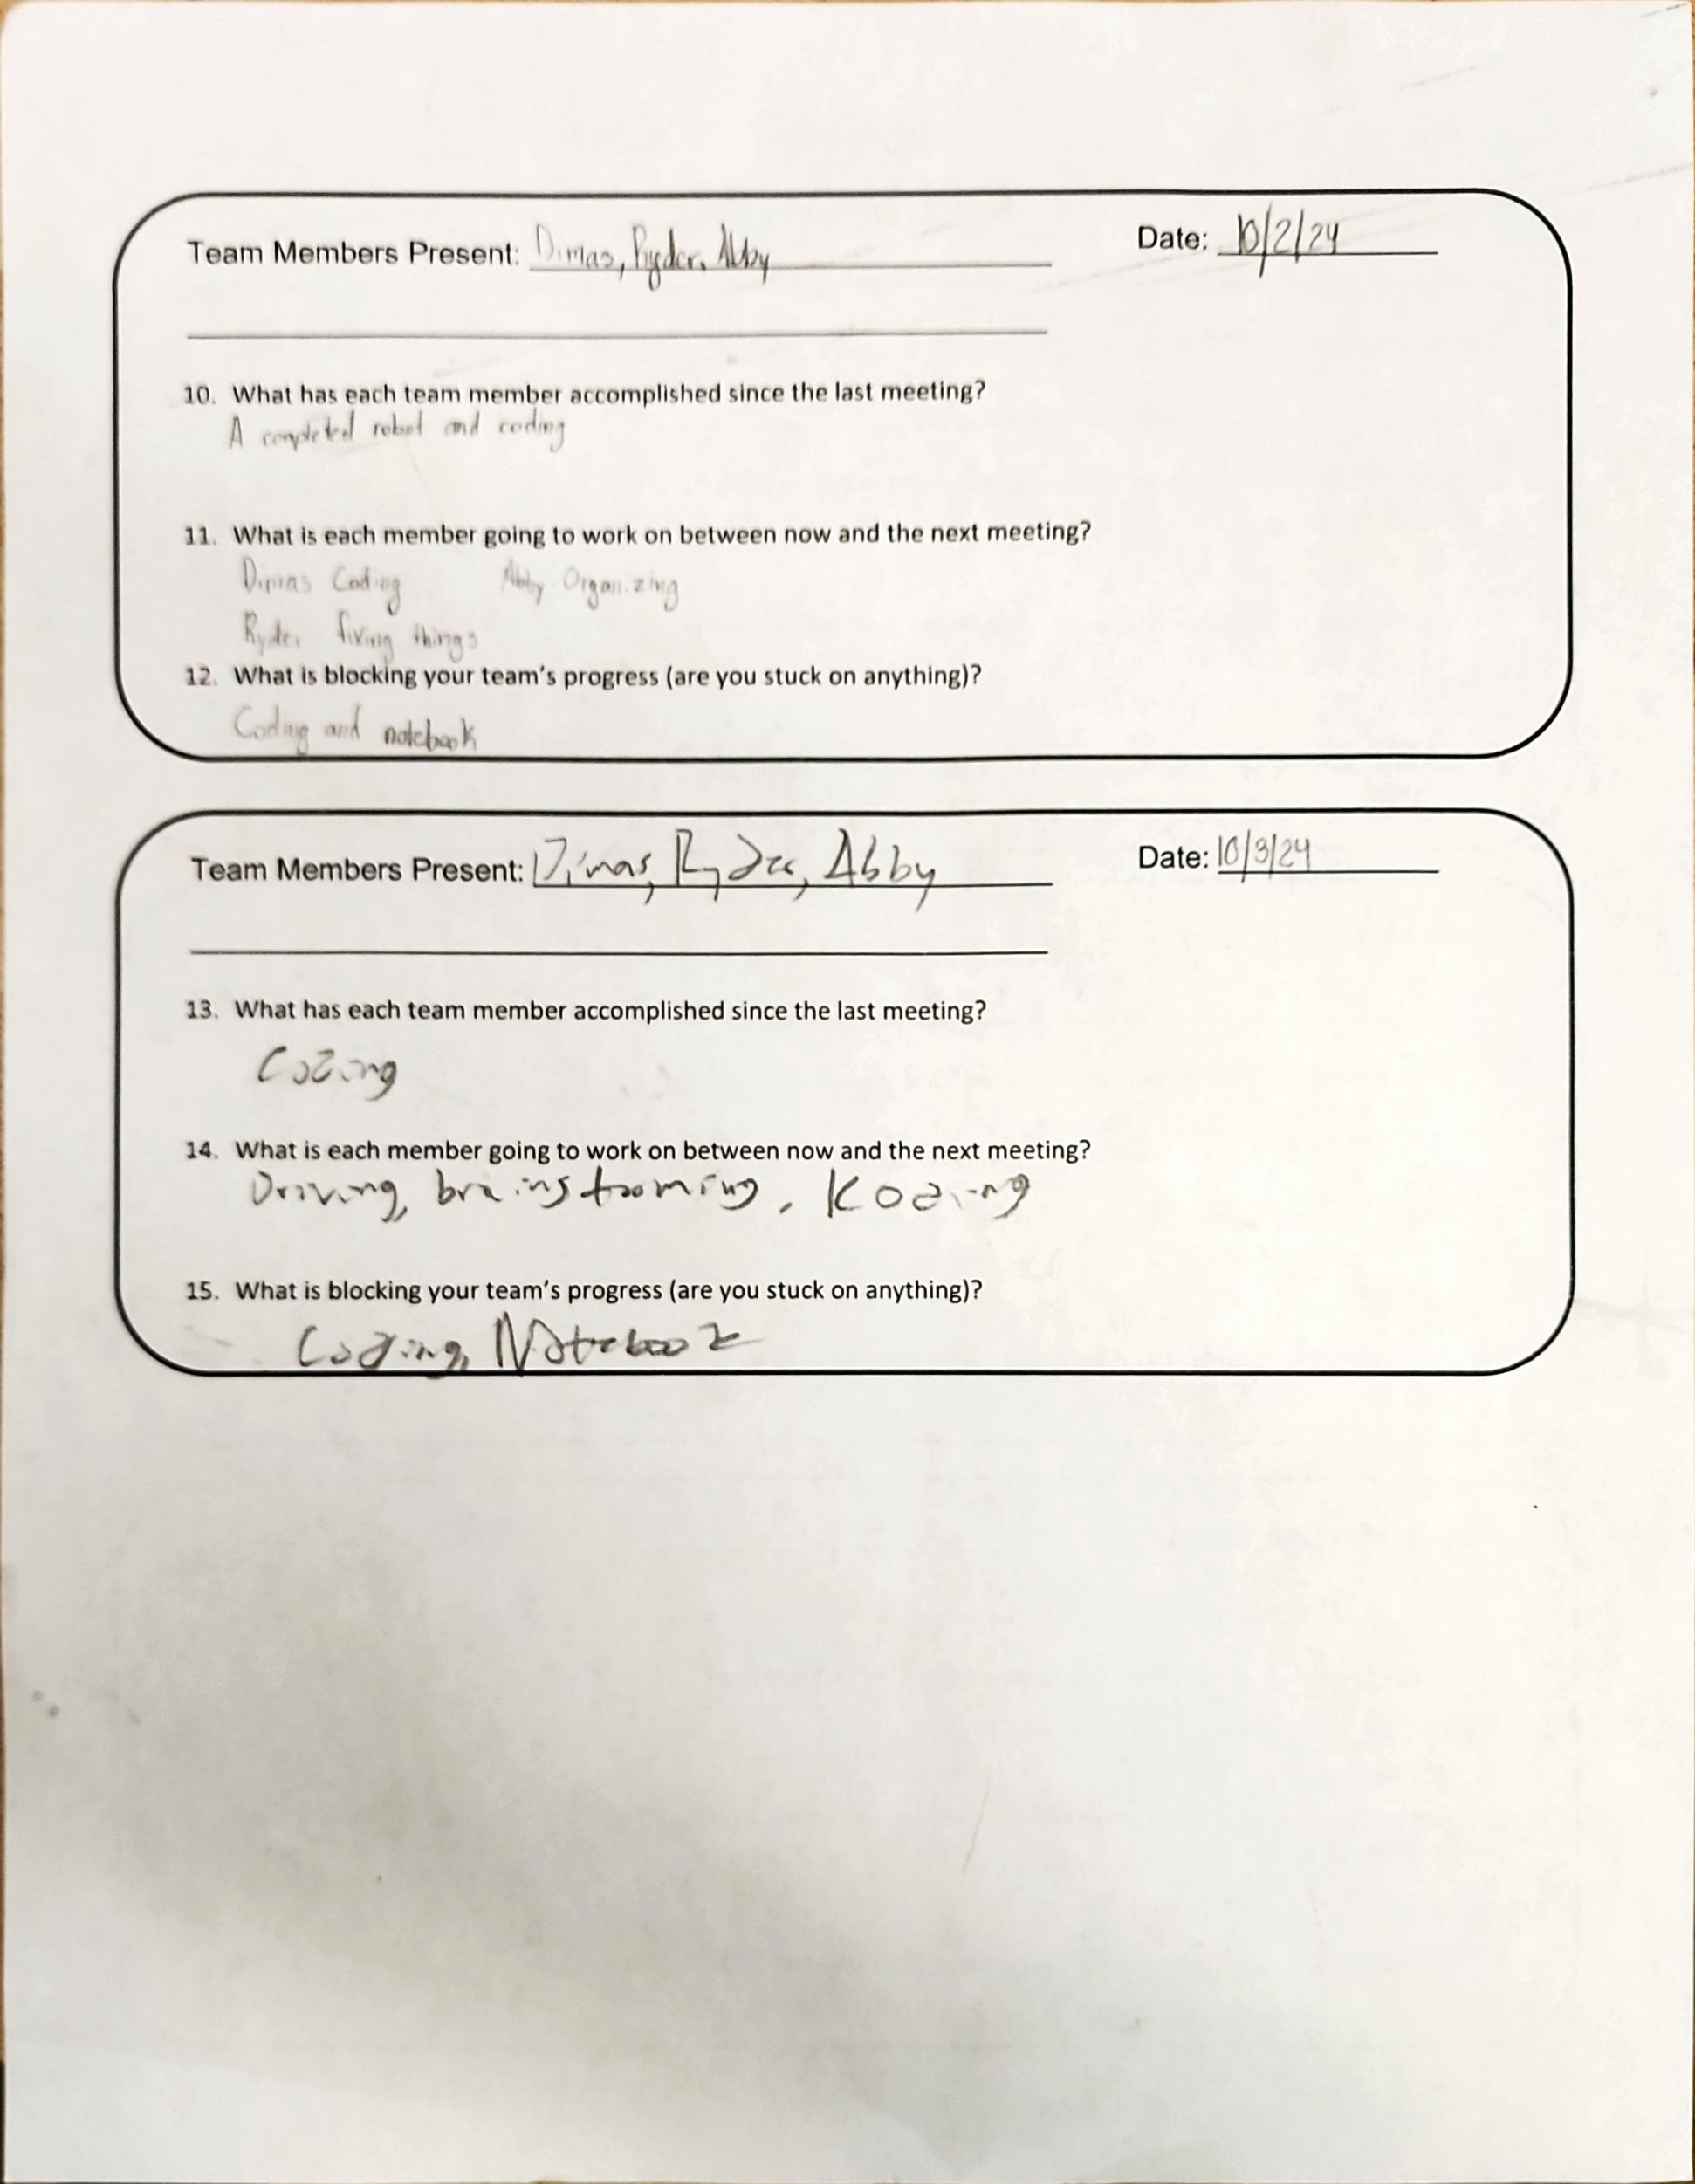 Team Members Present: Dimas, Ryder, Abby Date: 10/2/24
10. What has each team member accomplished since the last meeting?
A completed robot and coding
11. What is each member going to work on between now and the next meeting?
Dimas Coding Abby Organizing
Ryder fixing things
12. What is blocking your team's progress (are you stuck on anything)?
Coding and notebook
Team Members Present: Dimas, Ryder, Abby Date: 10/3/24
13. What has each team member accomplished since the last meeting?
Coding
14. What is each member going to work on between now and the next meeting?
Driving, brainstooming, Koding
15. What is blocking your team's progress (are you stuck on anything)?
Coding, Notebook